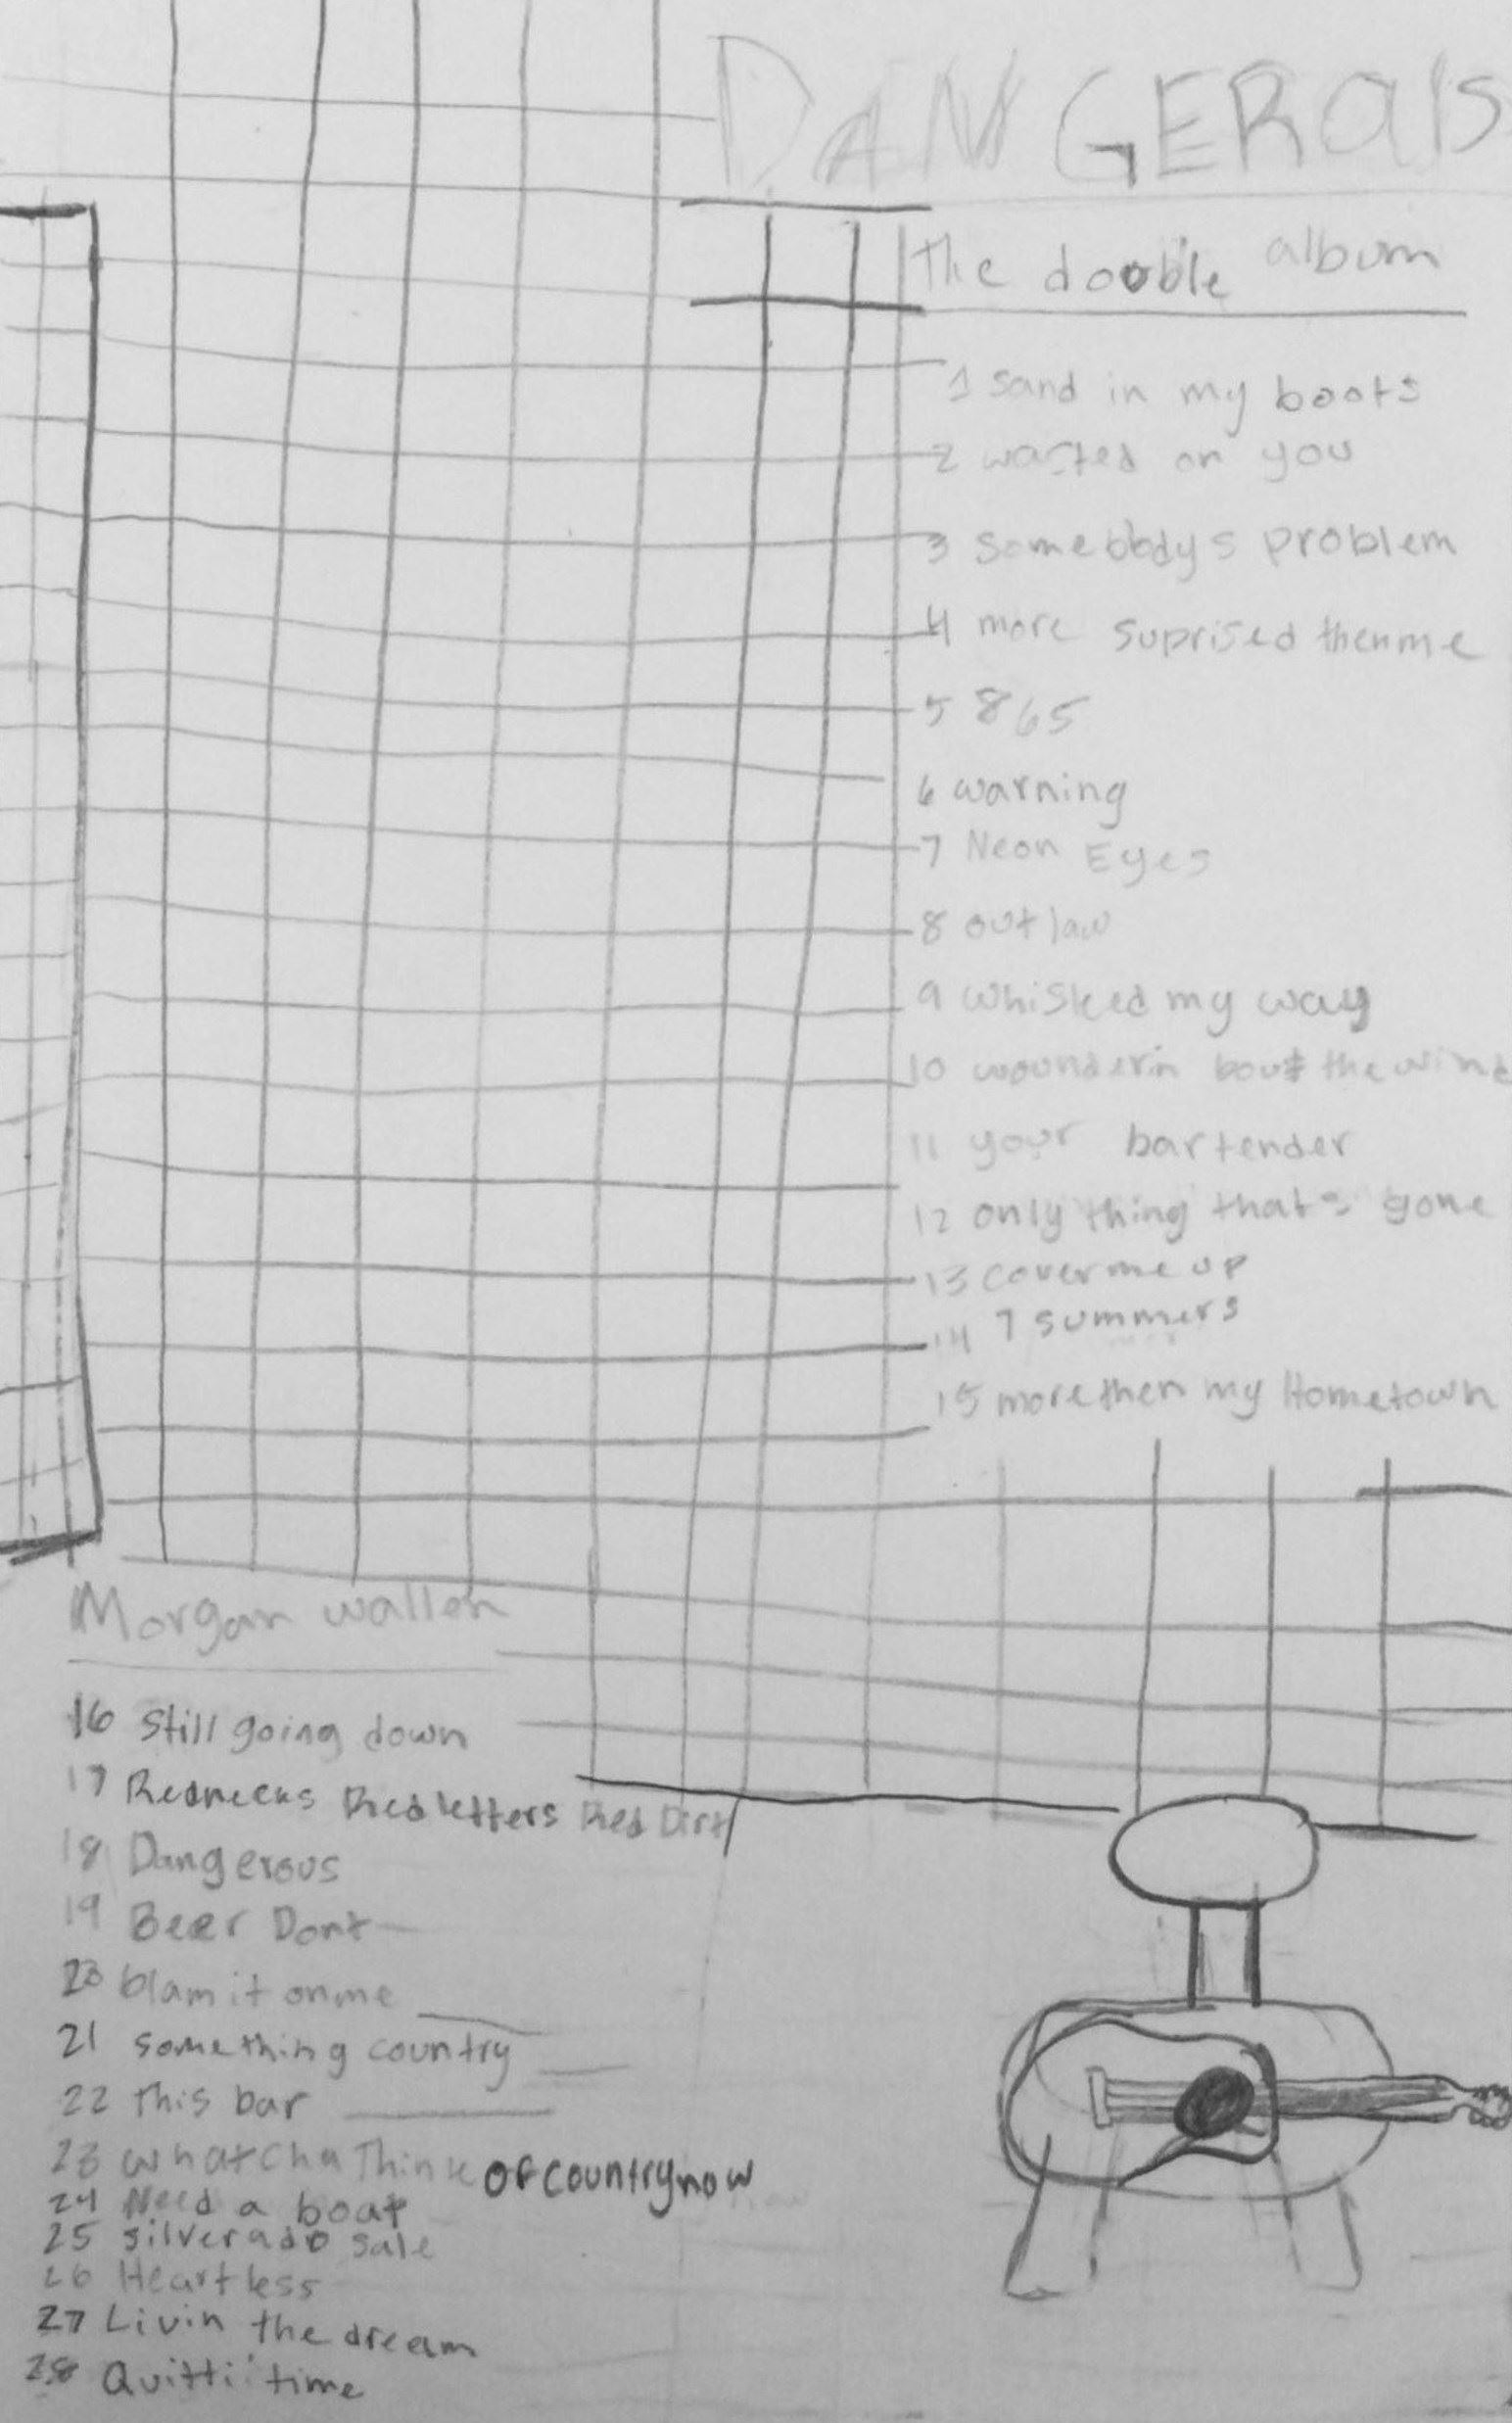 DANGEROUS
The double album
1 sand in my boots
2 wasted on you
3 somebodys problem
4 more suprised then me
5 865
6 warning
7 Neon Eyes
8 outlaw
9 whiskeed my way
10 wounderin bout the wind
11 your bartender
12 only thing that's gone
13 cover me up
14 7 summers
15 more then my Hometown
Morgan wallen
16 still going down
17 Rednecks Red letters Red Dirt
18 Dangerous
19 Beer Dont
20 blam it on me
21 something country
22 this bar
23 whatcha Think of country now
24 Need a boat
25 silverado sale
26 Heartless
27 Livin the dream
28 Quitti' time